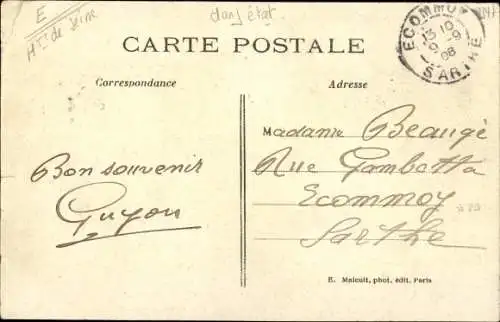 E
Hts de Seine
dans état
CARTE POSTALE
ECOMMOY
13 10
9 -9
08
SARTHE
Correspondance
Adresse
Madame Beaugé
Rue Gambetta
Ecommoy
Sarthe
Bon souvenir
Guyon
E. Malcuit, phot. édit. Paris